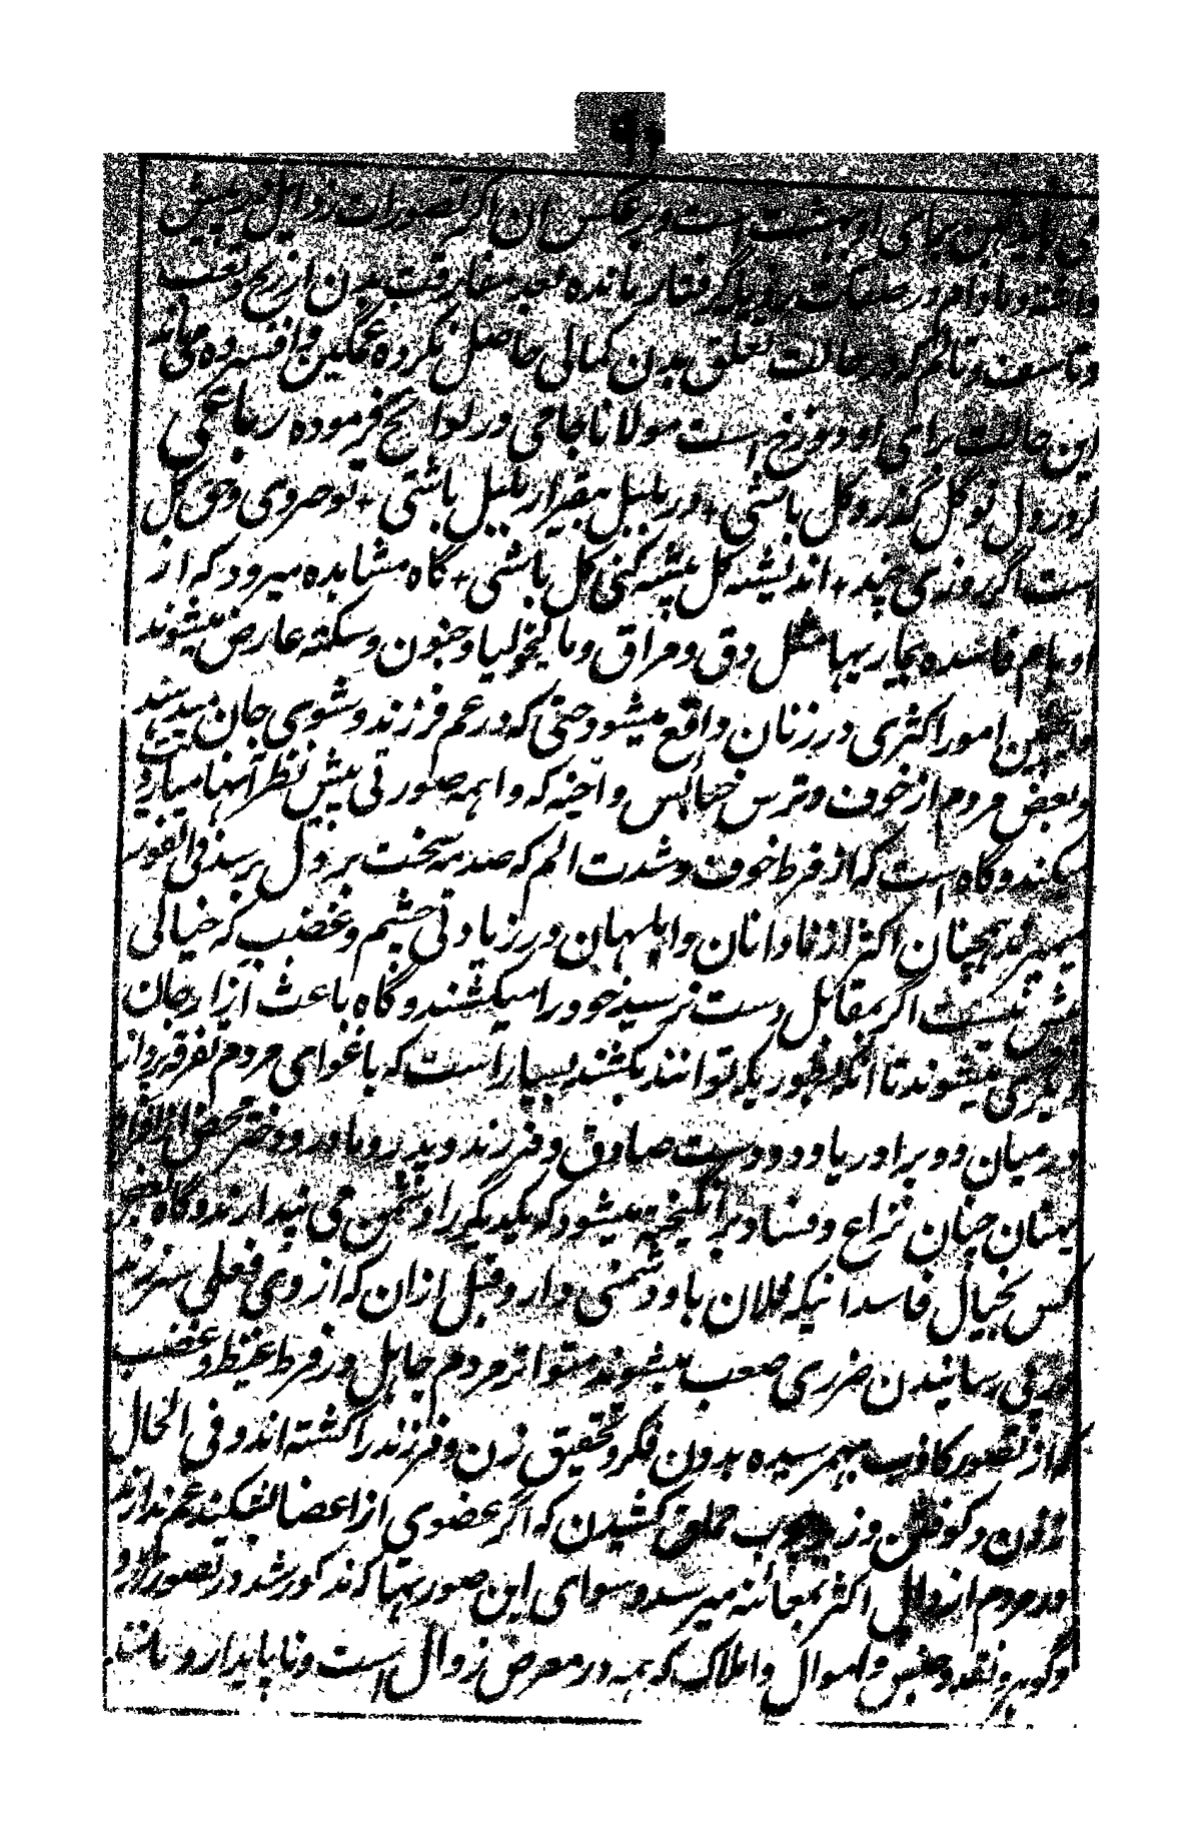 می یابد همین بجای او بهشت است و بر عکس آن اگر تصورات رذوایل در پیش
داشته و مادام در صفات گرفتار مانده بعد مفارقت بدن از رنج و تعب
و تاسف و تالم که در حالت تعلق بدن کمالی حاصل نکرده غمگین و افسرده می ماند
این حالت برای او دوزخ است مولانا جامی در لوایح فرموده رباعی
گر در دل تو گل گذرد گل باشی + ور بلبل بیقرار بلبل باشی + تو جزوی و حق کل
است اگر روزی چند + اندیشه کل پیشه کنی کل باشی + گاه مشاهده میرود که از
اوهام فاسده بیماریها مثل دق و مراق و مالیخولیا و جنون و سکته عارض میشوند
و همچنین امور اکثری در زنان واقع میشود حتی که در غم فرزند و شوی جان میدهند
و بعض مردم از خوف و ترس خناس و اجنه که واهمه صورتی پیش نظر آنها میآرد
میکند و گاه است که از فرط خوف و شدت الم که صدمه سخت بر دل برسد فی الفور
میمیرند همچنان اکثر از نادانان و ابلهان در زیادتی خشم و غضب که خیالی
بیش نیست اگر بمقابل دست نرسید خود را میکشند و گاه باعث آزار جان
دیگری میشوند تا آنکه بطوریکه توانند بکشند بسیار است که باغوای مردم تفرقه پرداز
در میان دو برادر یا دو دوست صادق و فرزند و پدر و مادر و دختر محض از
میان چنان نزاع و فساد برانگیخته میشود که یکدیگر را دشمن می پندارند و گاه
کس بخیال فاسد اینکه فلان باو دشمنی دارد و قبل ازان که از وی فعلی سرزند
در پی رسانیدن ضرری صعب میشوند متواتر مردم جاهل در فرط غیظ و غضب
که از تصور کاذب بهم رسیده بدون فکر و تحقیق زن و فرزند را کشته اند و فی الحال
زدن و کوفتن و کشیدن که اگر عضوی از اعضا بشکند غم ندارند
در مردم ارذال اکثر بمعائنه میرسد و سوای این صورتها که مذکور شد در تصور زر و
و گوهر و نقد و جنس و اموال و املاک که همه در معرض زوال است و ناپایدار و